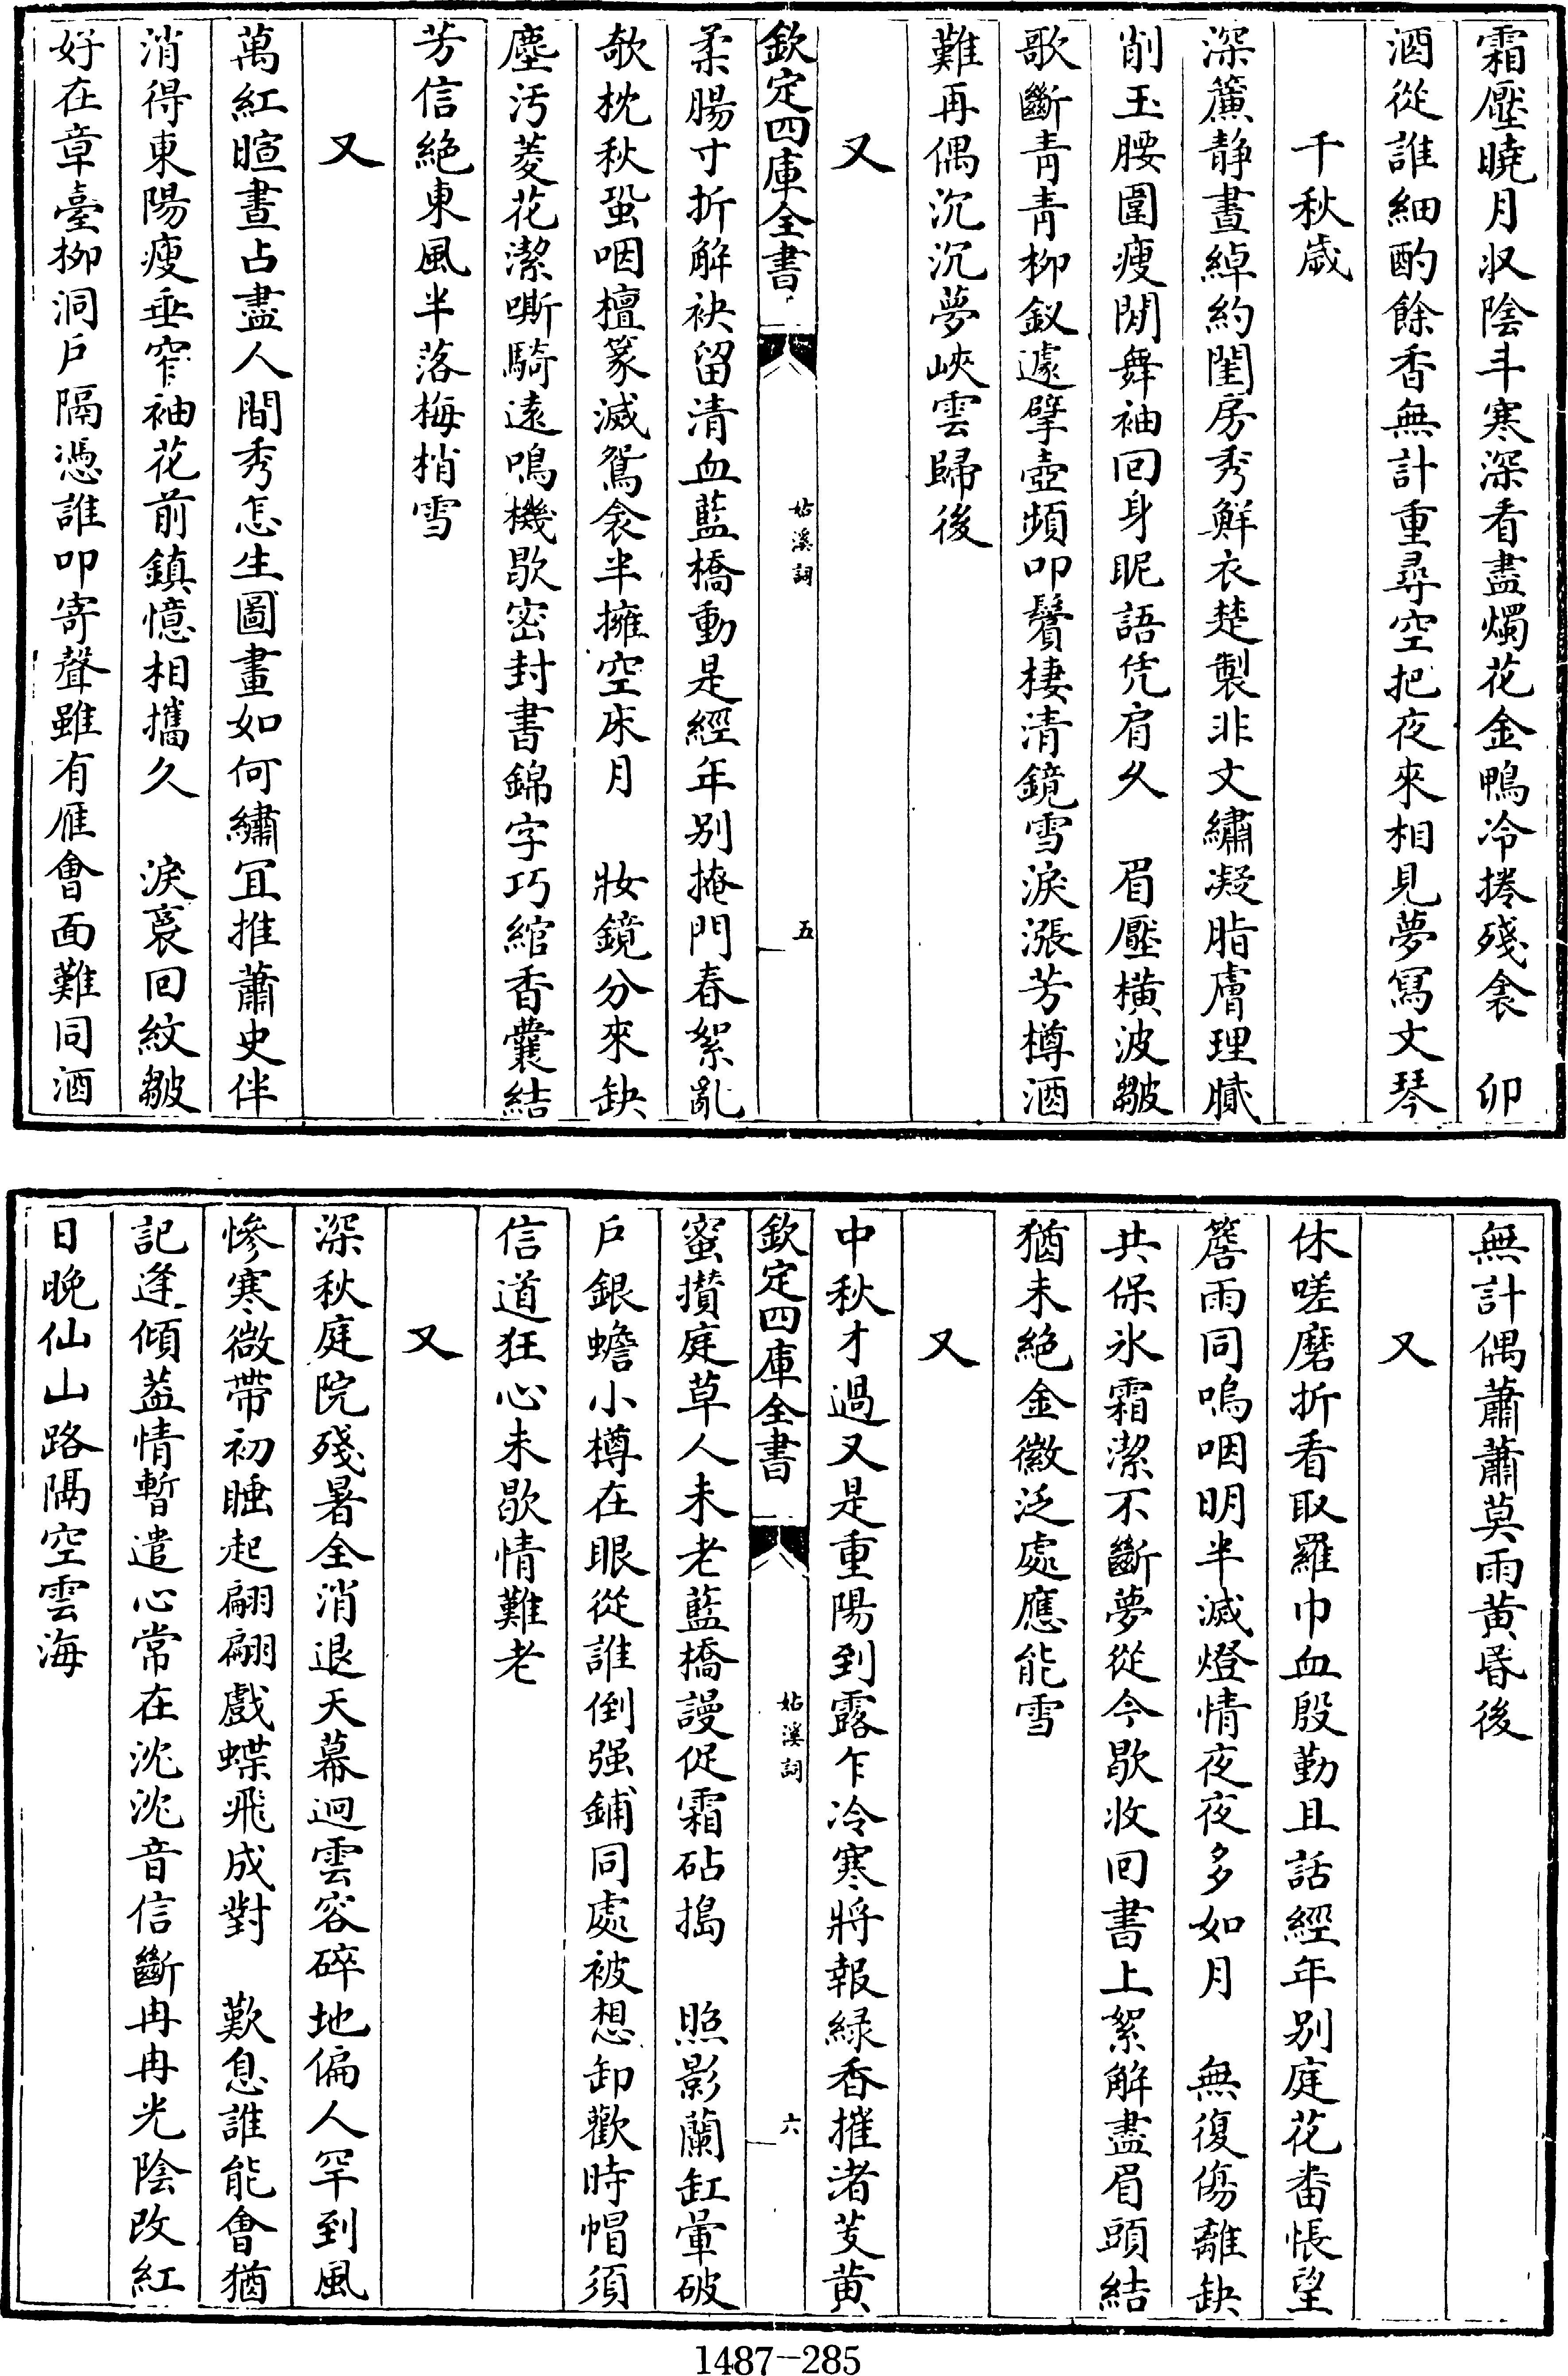 霜壓曉月収陰斗寒深看盡燭花金鴨冷捲殘衾　卯
酒從誰細酌餘香無計重尋空把夜來相見夢寫文琴
千秋歲
深簾静晝綽約閨房秀鮮衣楚製非文繡凝脂膚理膩
削玉腰圍瘦閒舞袖回身昵語凭肩久　眉壓横波皺
歌斷青青柳釵遽擘壺頻叩鬢棲清鏡雪淚漲芳樽酒
難再偶沉沉夢峽雲歸後
又
欽定四庫全書
姑溪詞
五
柔腸寸折解袂留清血藍橋動是經年别掩門春絮亂
欹枕秋蛩咽檀篆滅鴛衾半擁空牀月　妝鏡分來缺
塵汚菱花潔嘶騎遠鳴機歇密封書錦字巧綰香囊結
芳信絶東風半落梅梢雪
又
萬紅暄晝占盡人間秀怎生圖畫如何繡宜推蕭史伴
消得東陽瘦垂窄袖花前鎮憶相攜久　淚裛回紋皺
好在章臺柳洞戶隔憑誰叩寄聲雖有雁會面難同酒
無計偶蕭蕭莫雨黄昏後
又
休嗟磨折看取羅巾血殷勤且話經年别庭花畨悵望
簷雨同嗚咽明半滅燈情夜夜多如月　無復傷離缺
共保氷霜潔不斷夢從今歇收回書上絮解盡眉頭結
猶未絶金徽泛處應能雪
又
中秋才過又是重陽到露乍冷寒將報緑香摧渚芰黄
欽定四庫全書
姑溪詞
六
蜜攢庭草人未老藍橋謾促霜砧搗　照影蘭缸暈破
戶銀蟾小樽在眼從誰倒强鋪同處被想卸歡時帽須
信道狂心未歇情難老
又
深秋庭院殘暑全消退天幕迥雲容碎地偏人罕到風
慘寒微帶初睡起翩翩戲蝶飛成對　歎息誰能會猶
記逢傾葢情暫遣心常在沈沈音信斷冉冉光陰改紅
日晚仙山路隔空雲海
1487-285